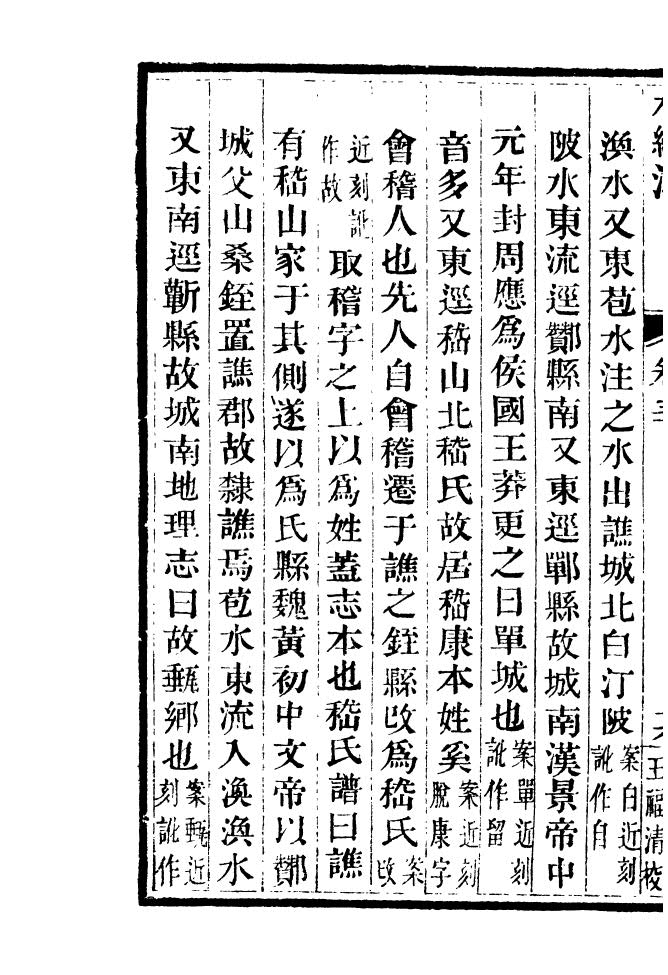 王福清校
渙水又東苞水注之水出譙城北白汀陂案白近刻訛作自
陂水東流逕酇縣南又東逕鄲縣故城南漢景帝中
元年封周應爲侯國王莽更之曰單城也案單近刻訛作留
音多又東逕嵇山北嵇氏故居嵇康本姓奚案近刻脫康字
會稽人也先人自會稽遷于譙之銍縣攺爲嵇氏案攺
近刻訛作故取稽字之上以爲姓蓋志本也嵇氏譜曰譙
有嵇山家于其側遂以爲氏縣魏黃初中文帝以酇
城父山桑銍置譙郡故隸譙焉苞水東流入渙渙水
又東南逕蘄縣故城南地理志曰故甀鄉也案甀近刻訛作